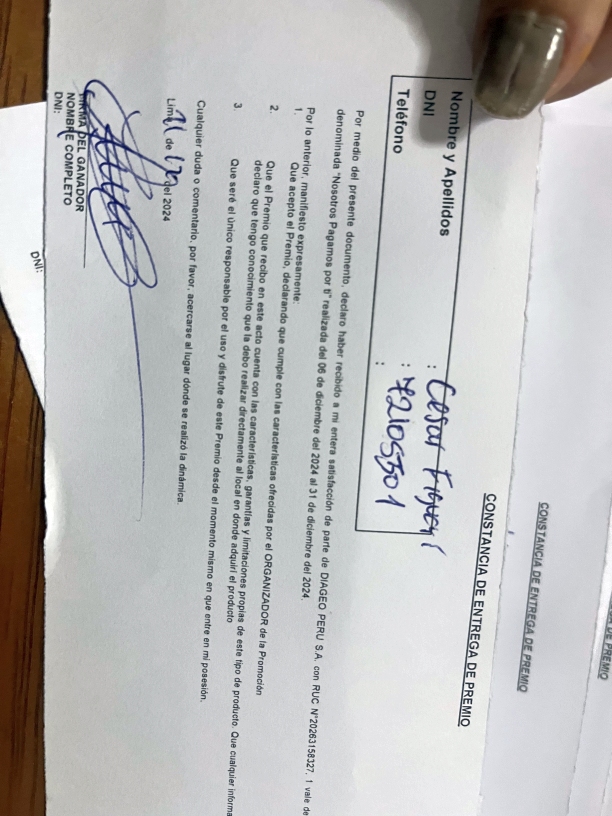 CONSTANCIA DE ENTREGA DE PREMIO
Nombre y Apellidos : Cesar
DNI : 72105501
Teléfono :
Por medio del presente documento, declaro haber recibido a mi entera satisfacción de parte de DIAGEO PERU S.A. con RUC N°20263158327, 1 vale de
denominada "Nosotros Pagamos por ti" realizada del 06 de diciembre del 2024 al 31 de diciembre del 2024.
Por lo anterior, manifiesto expresamente:
1. Que acepto el Premio, declarando que cumple con las características ofrecidas por el ORGANIZADOR de la Promoción
2. Que el Premio que recibo en este acto cuenta con las características, garantías y limitaciones propias de este tipo de producto. Que cualquier informa
declaro que tengo conocimiento que la debo realizar directamente al local en donde adquirí el producto
3. Que seré el único responsable por el uso y disfrute de este Premio desde el momento mismo en que entre en mi posesión.
Cualquier duda o comentario, por favor, acercarse al lugar donde se realizó la dinámica.
Lima, de del 2024
FIRMA DEL GANADOR
NOMBRE COMPLETO
DNI:
DNI:
CONSTANCIA DE ENTREGA DE PREMIO
DE PREMIO